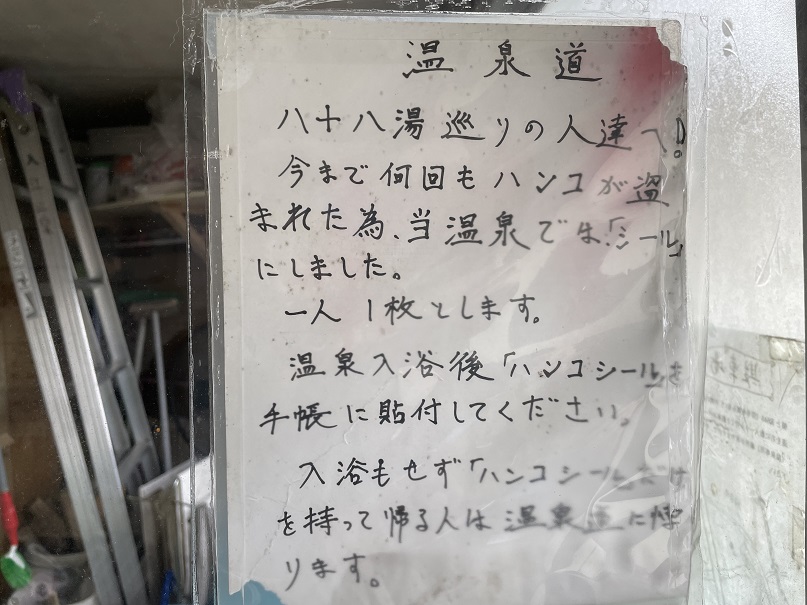 温泉道
八十八湯巡りの人達へ!
今まで何回もハンコが盗
まれた為、当温泉では、「シール」
にしました。
一人 1枚とします。
温泉入浴後「ハンコシール」を
手帳に貼付してください。
入浴もせず「ハンコシール」だけ
を持って帰る人は温泉道に悖
ります。